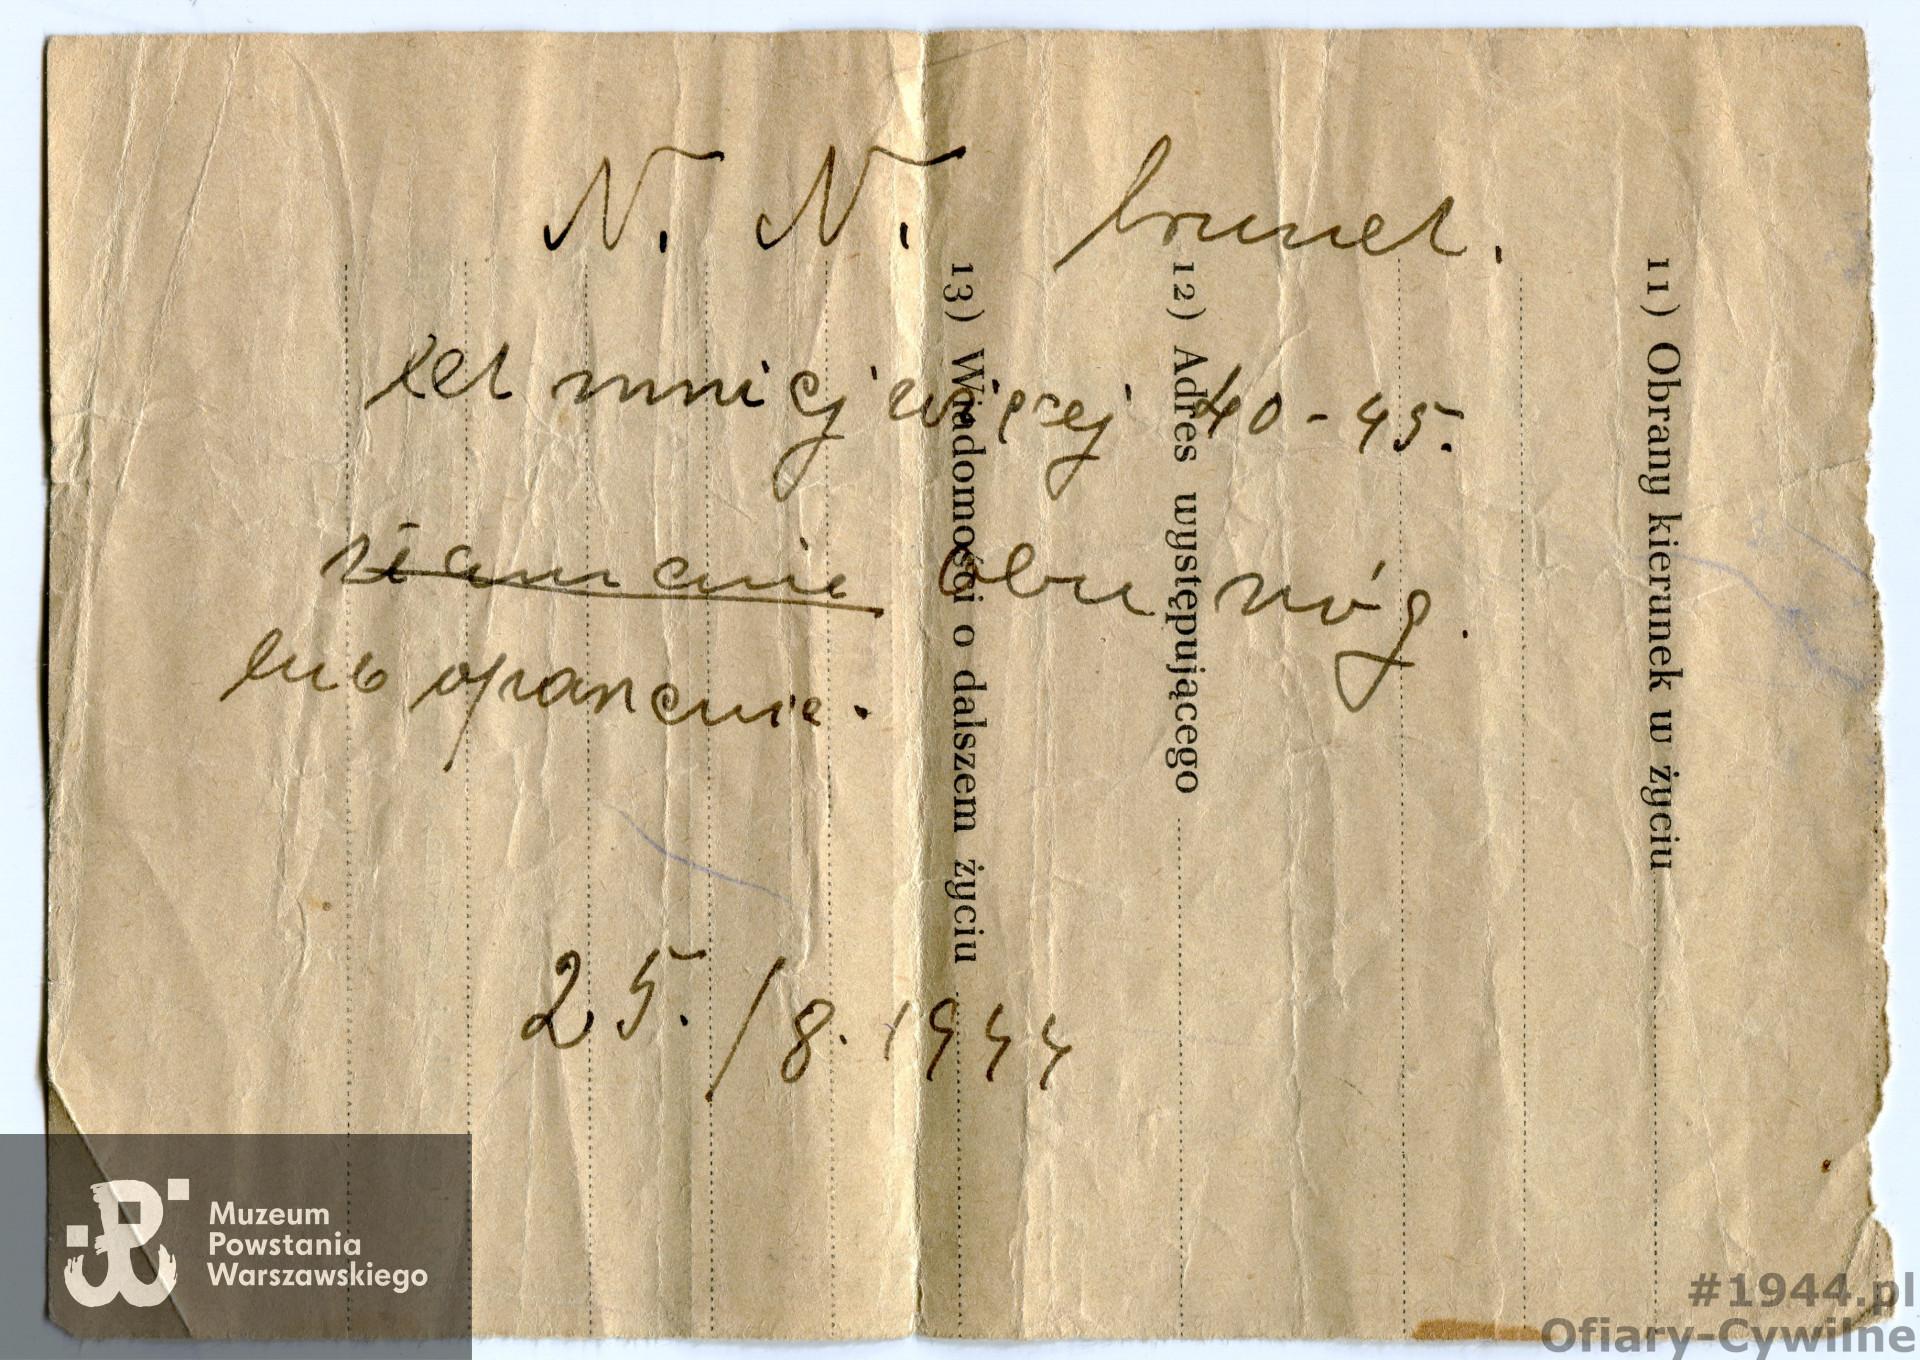 N. N. brunet.
Let mniej więcej 40-45.
złamanie obu nóg.
lub oparzenie.
25./8. 1944
11) Obrany kierunek w życiu
12) Adres występującego
13) Wiadomości o dalszem życiu
Muzeum
Powstania
Warszawskiego
#1944.pl
Ofiary-Cywilne